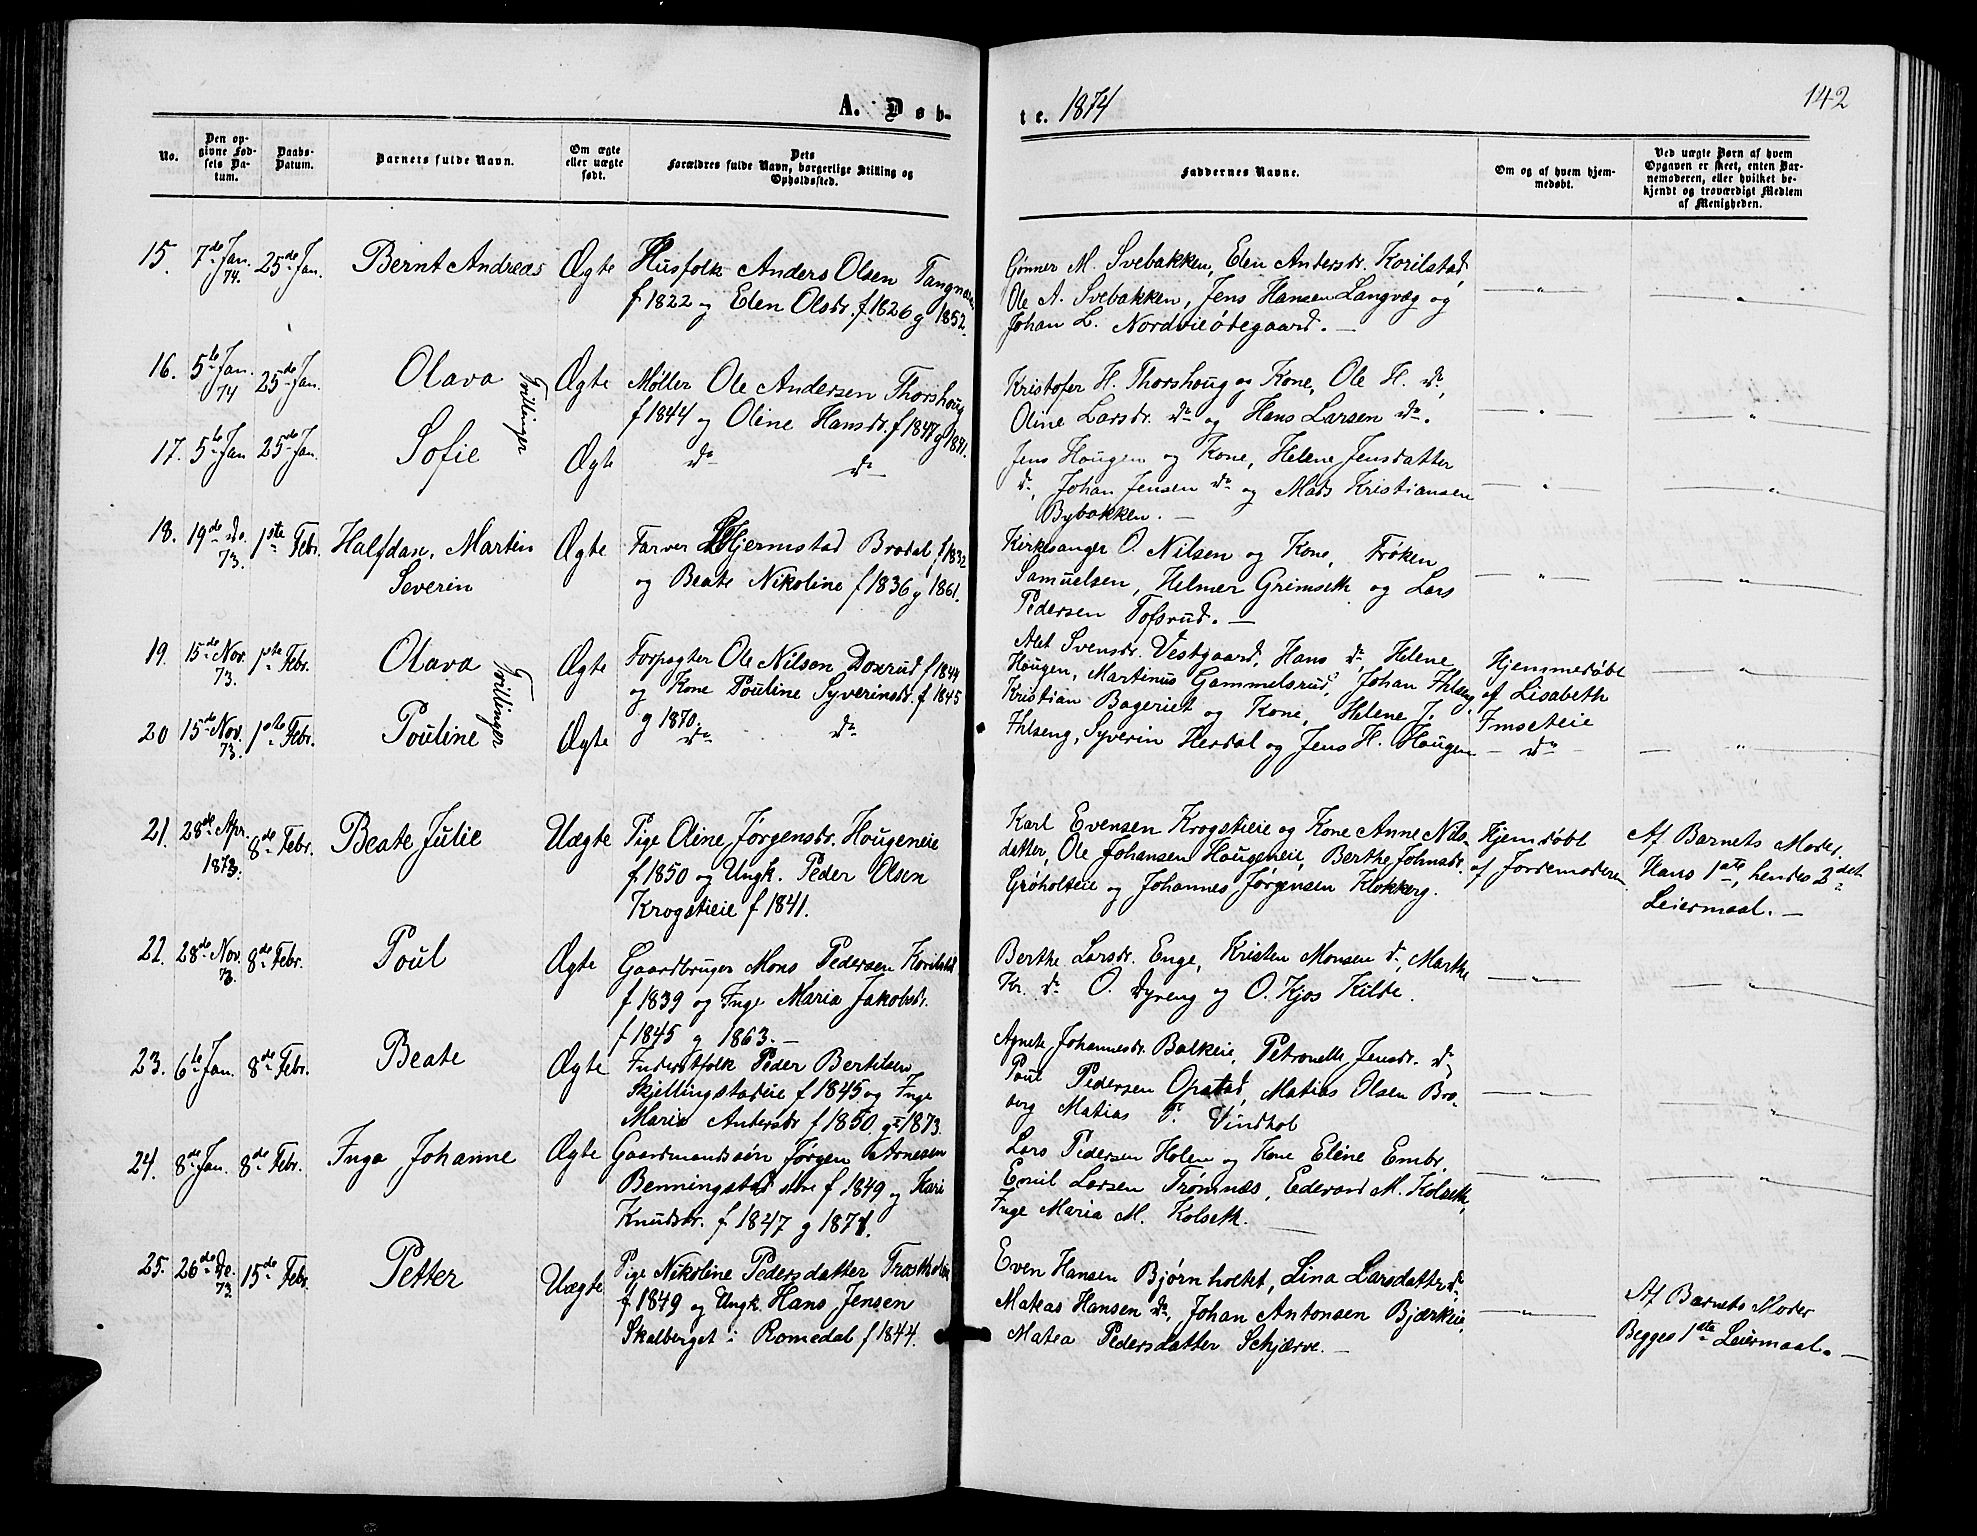 A. Døb-
te. 1874
142
No.
Den op-
givne Fød-
sels Da-
tum.
Daabs-
Datum.
Barnets fulde Navn.
Om ægte
eller uægte
født.
Dets
Forældres fulde Navn, borgerlige Stilling og
Opholdssted.
Faddernes Navne.
Om og af hvem hjem-
medøbt.
Ved uægte Børn af hvem
Opgaven er skeet, enten Bar-
nemoderen, eller hvilket be-
kjendt og troværdigt Medlem
af Menigheden.
15. 7de Jan. 74. 25de Jan. Bernt Andreas Ægte
Husfolk Anders Olsen Tangnæs
f 1822 og Elen Olsdr. f. 1826 g 1852.
Gønner M. Svebakken, Elen Andersdr. Korilstad,
Ole A. Svebakken, Jens Hansen Langvæg og
Johan L. Nordvieødegaard. —
— " — — " —
16. 5te Jan. 74 25de Jan. Olava Tvillinger Ægte
Møller Ole Andersen Thorshoug
f 1844 og Oline Hansdr. f 1847 g 1871.
Kristofer H. Thorshoug og Kone, Ole H. do,
Oline Larsdr. do og Hans Larsen do.
— " — — " —
17. 5te Jan 25de Jan. Sofie Ægte
do do
Jens Hougen og Kone, Helene Jensdatter
do, Johan Jensen do og Mads Kristiansen
Bybakken. —
— " — — " —
18. 19de De. 73. 1ste Febr. Halfdan, Martin
Severin Ægte
Farver Hjermstad Brodal f 1832
og Beate Nikoline f 1836 g 1861.
Kirkesanger O. Nilsen og Kone, Frøken
Samuelsen, Helmer Grimseth og Lars
Pedersen Tofsrud. —
— " — — " —
19. 15de Nov. 73. 1ste Febr. Olava Tvillinger Ægte
Forpagter Ole Nilsen Doxrud f 1844
og Kone Pouline Syverinsdr. f 1845
g 1870.
Alet Svensdr. Vestgaard, Hans do, Helene
Hougen, Martinus Gammelsrud, Johan Ihlseng,
Hjemmedøbt
af Lisabeth
Imseteie
— " —
20 15de Nov. 73. 1ste Febr. Pouline Ægte
do do
Kristian Bageriet og Kone, Helene J.
Ihlseng, Syverin Herdal og Jens H. Hougen
— do
— " —
21. 28de Apr. 1873. 8de Febr. Beate Julie Uægte
Pige Oline Jørgensdr. Hougeneie
f 1850 og Ungk. Peder Olsen
Krogstieie f 1841.
Karl Evensen Krogstieie og Kone Anne Nils-
datter, Ole Johansen Hougeneie, Berthe Johnsdr.
Grøholteie og Johannes Jørgensen Klokkerg.
Hjemdøbt
af Jordemoderen
Af Barnets Moder.
Hans 1ste, hendes 2det
Leiermaal. —
22. 28de Nov. 73. 8de Febr. Poul Ægte
Gaardbruger Mons Pedersen Korilstad
f 1839 og Inge Maria Jakobsdr.
f 1845 g 1863. —
Berthe Larsdr. Enge, Kristen Monsen do, Marthe
Kr. do O. Dyreng og O. Kjos Kilde.
— " — — " —
23. 6te Jan. 8de Febr. Beate Ægte
Inderstfolk Peder Bertilsen
Skjellingstadeie f 1845 og Inge
Maria Andersdr f 1850. g 1873.
Agnete Johannesdr. Balkeie, Petronelle Jensdr. do
Poul Pedersen Opstad, Matias Olsen Bro-
berg Matias P. Vindhol
— " — — " —
24. 8de Jan. 8de Febr. Inga Johanne Ægte
Gaardmandssøn Jørgen Arnesen
Benningstad søre f 1849 og Kari
Knudsdr. f 1847 g 1871.
Lars Pedersen Holen og Kone Eline Embr.
Emil Larsen Trømnæs, Edevard M. Kolseth,
Inge Maria M. Kolseth. —
— " — — " —
25. 26de De. 73. 15de Febr. Petter Uægte
Pige Nikoline Pedersdatter Trostholen
f 1849 og Ungk. Hans Jensen
Skalberget i Romedal f 1844.
Even Hansen Bjørnholtet, Lina Larsdatter do,
Mateas Hansen do, Johan Antonsen Bjærkeie,
Matea Pedersdatter Schjærve. —
— " —
Af Barnets Moder
Begges 1ste Leiermaal. —